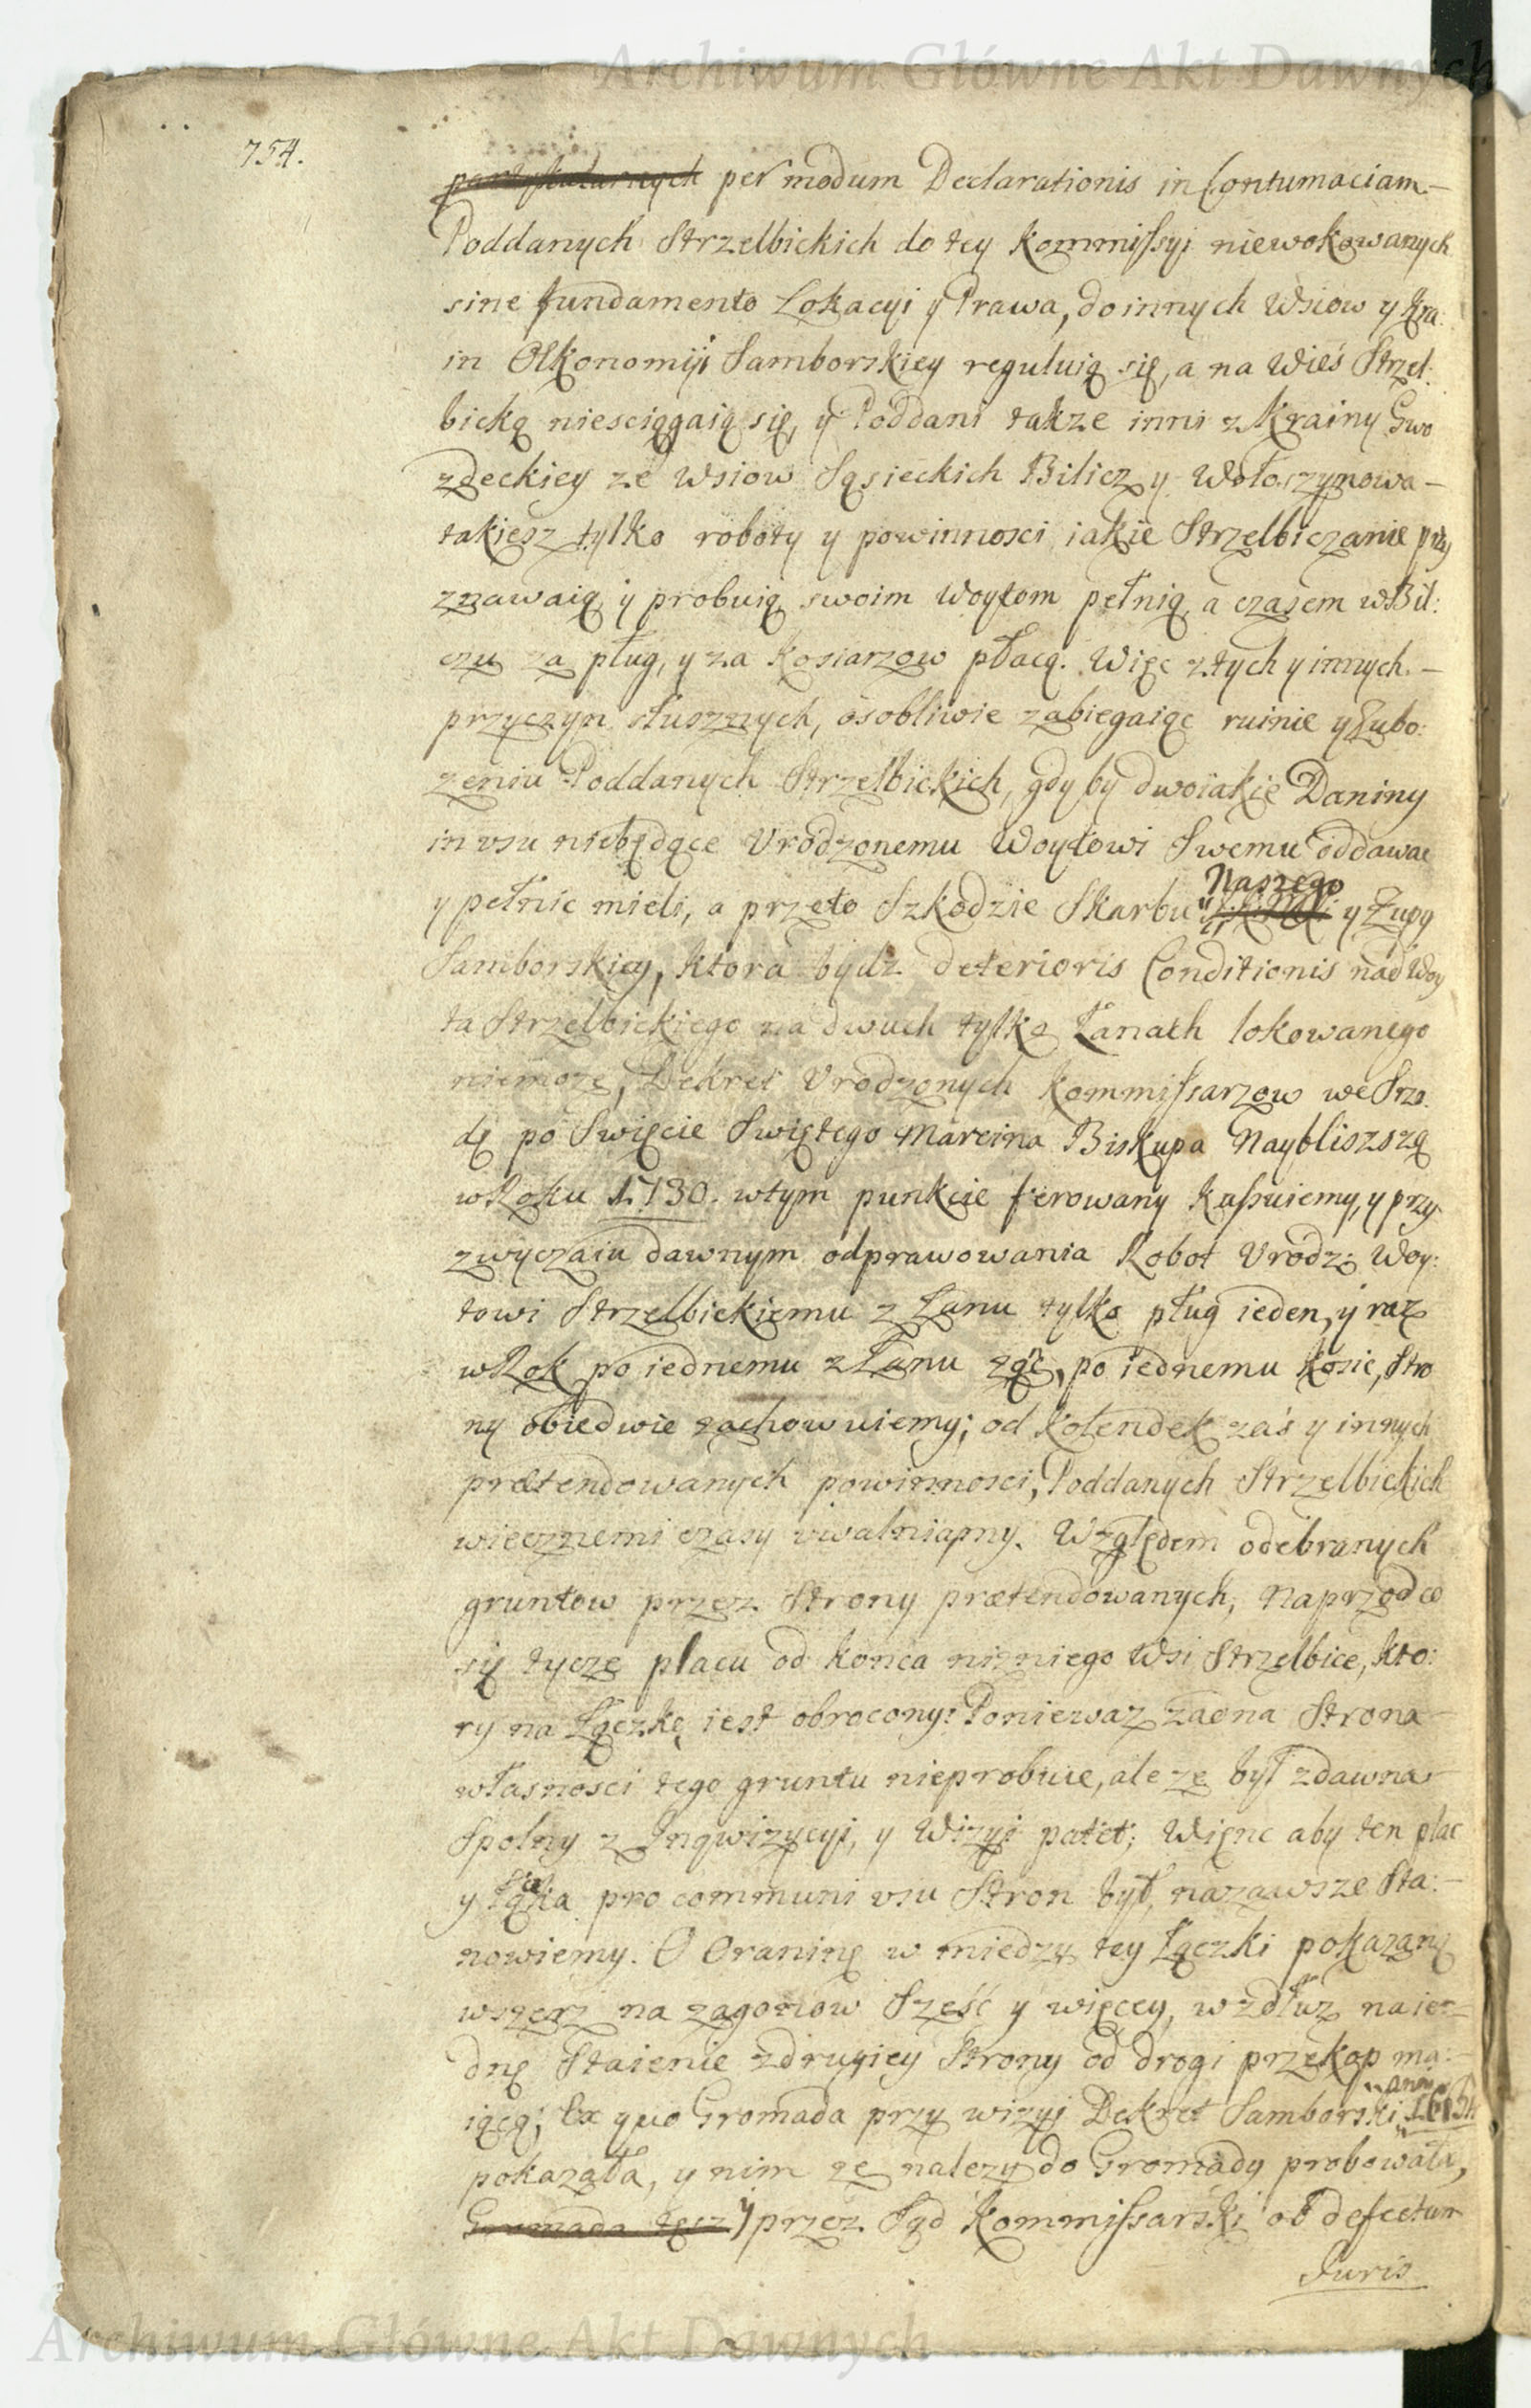 Archiwum Główne Akt Dawnych
754.
partykularnych per modum Declarationis in Contumaciam.—
Poddanych Strzelbickich do tey Kommissyi niewokowanych
sine fundamento Lokacyi y Prawa, do innych Wsiow y Kra:
in Œkonomiji Samborskiey reguluią się, a na Wieś Strzel:
bicką niesciągaią się, y Poddani takze inni z Krainy Gwo
zdeckiey ze Wsiow Sąsieckich Bilicz y Wołoszynowa—
takiesz tylko roboty y powinnosci iakie Strzelbiczanie przy
znawaią y probuią swoim Woytom pełnią, a czasem w Bil:
czu za pług, y za Kosiarzow płacą. Więc z tych y innych.—
przyczyn słusznych, osobliwie zabiegaiąc ruinie y Zubo:
zeniu Poddanych Strzelbickich, gdy by dwoiakie Daniny
in usu niebędące Urodzonemu Woytowi Swemu oddawac
y pełnic mieli, a przeto Szkodzie Skarbu Naszego y Zupy
Samborskiey, ktora bydz deterioris Conditionis nad Woy
ta Strzelbickiego na dwuch tylko Łanach lokowanego
niemoze, Dekret Urodzonych Kommissarzow we Srzo:
dę po Swięcie Swiętego Marcina Biskupa Naybliszszą
w Roku 1730. w tym punkcie ferowany Kassuiemy, y przy
zwyczaiu dawnym odprawowania Robot Urodz: Woy:
towi Strzelbickiemu z Łanu tylko pług ieden, y raz
w Rok po iednemu z Łanu ząć, po iednemu Kosic, Stro
ny obiedwie zachowuiemy; od Kolendek zaś y innych
prætendowanych powinnosci, Poddanych Strzelbickich
wiecznemi czasy uwalniamy. Względem odebranych
gruntow przez Strony prætendowanych, Naprzod co
się tycze placu od konca niznego Wsi Strzelbice, kto:
ry na Łączkę iest obrocony: Poniewaz zadna Strona—
własnosci tego gruntu nieprobuie, ale ze był zdawna—
Spolny z Inqwizycyi, y Wizyi patet; Więnc aby ten plac
y Łąka pro communi usu Stron był, nazawsze Sta:—
nowiemy. O Oraninę w miedzy tey Łączki pokazaną
wszerz na zagonow Sześć y więcey, w zdłuz na ie—
dnę Staienie z drugiey Strony od drogi przekop ma:—
iącą; Ex quo Gromada przy wizyi Dekret Samborski anni
pokazała, y nim ze nalezy do Gromady probowała,
Gromada tesz y przez Sąd Kommissarski ob defectum
Juris
Archiwum Główne Akt Dawnych